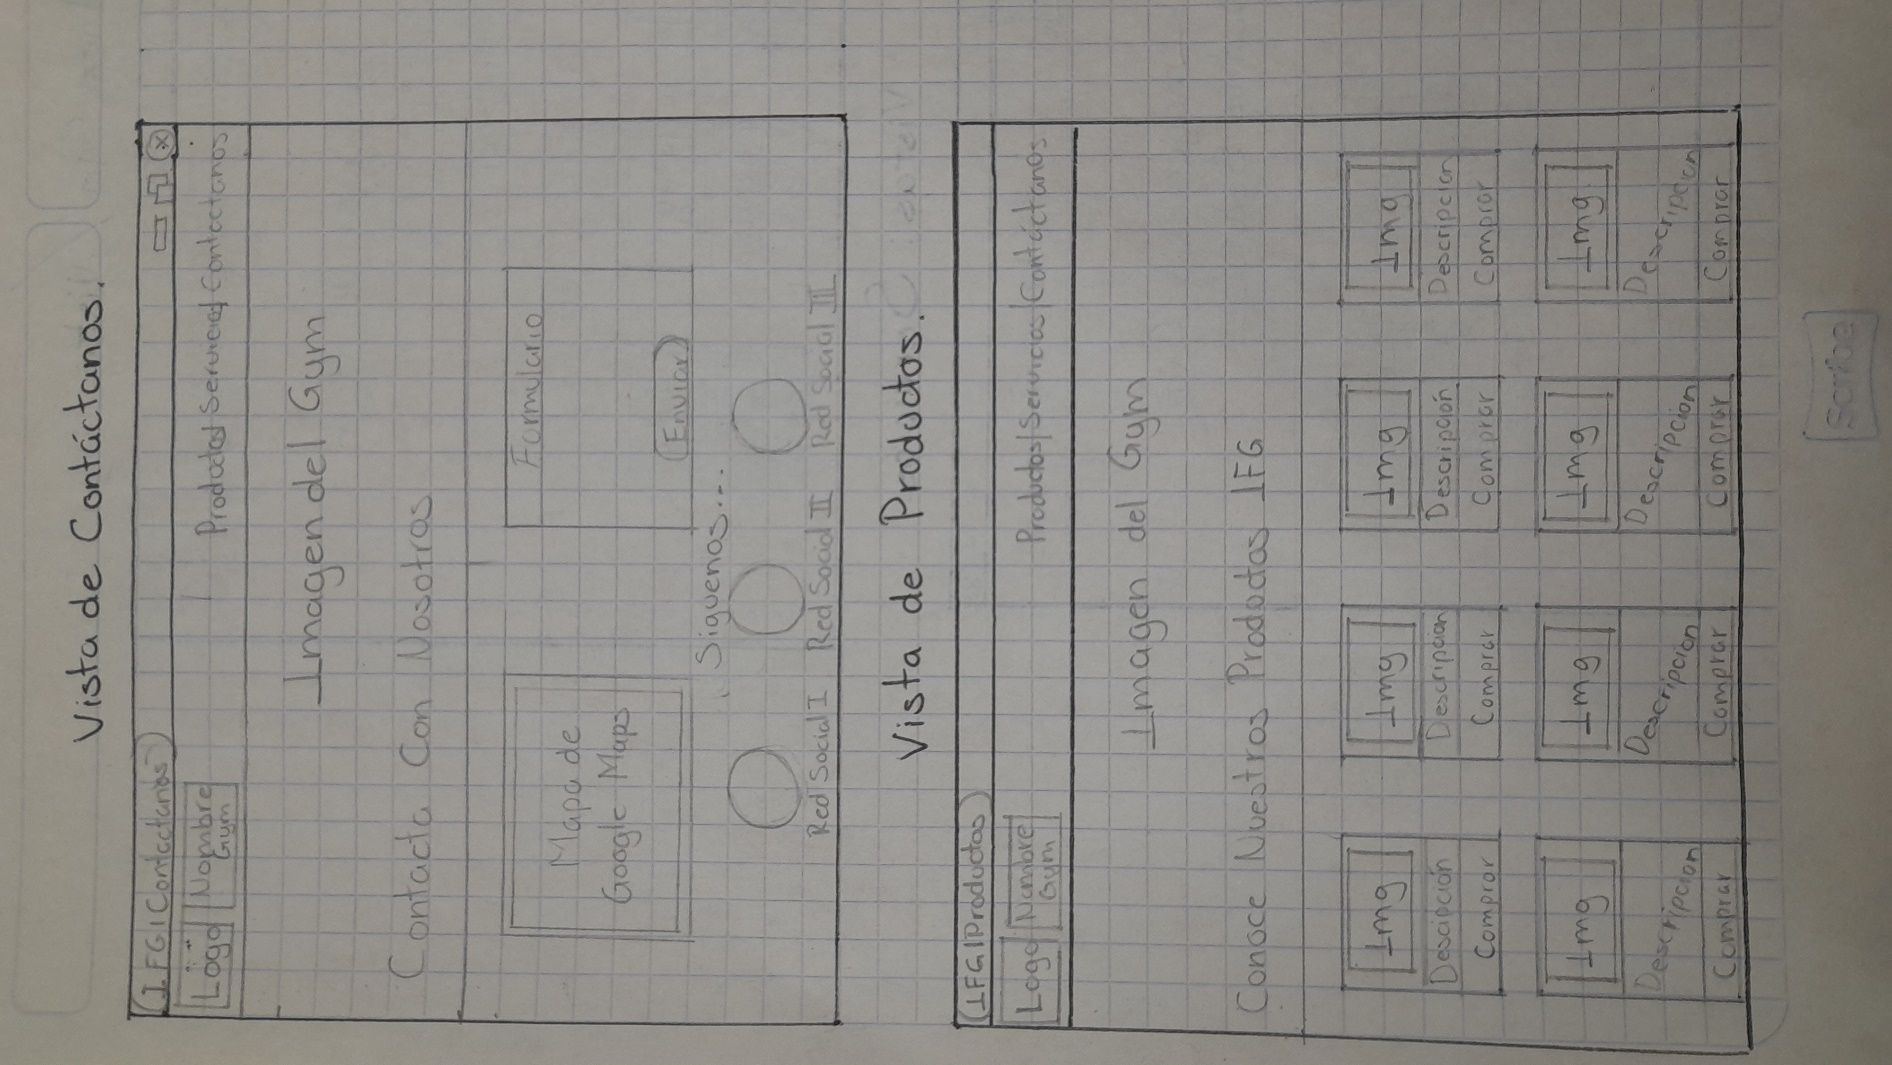 Vista de Contáctanos.
IFG|Contactanos
Logo Nombre Gym Productos/Servicios/Contactanos
Imagen del Gym
Contacta Con Nosotros
Mapa de Google Maps
Formulario
Enviar
Siguenos...
Red Social I Red Social II Red Social III
Vista de Productos.
IFG|Productos
Logo Nombre Gym Productos/Servicios/Contáctanos
Imagen del Gym
Conoce Nuestros Productos IFG
Img Img Img Img
Descipción Descripción Descripción Descripcion
Comprar Comprar Comprar Comprar
Img Img Img Img
Descripcion Descripcion Descripcion Descripcion
Comprar Comprar Comprar Comprar